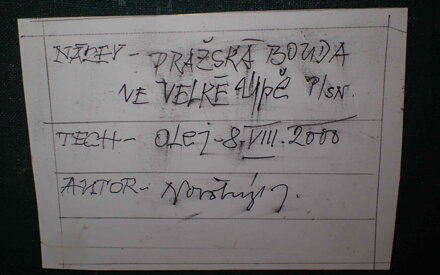 NÁZEV - PRAŽSKÁ BOUDA
VE VELKÉ ÚPĚ P/SN.
TECH - OLEJ - 8. VIII. 2000
AUTOR - Novotný J.